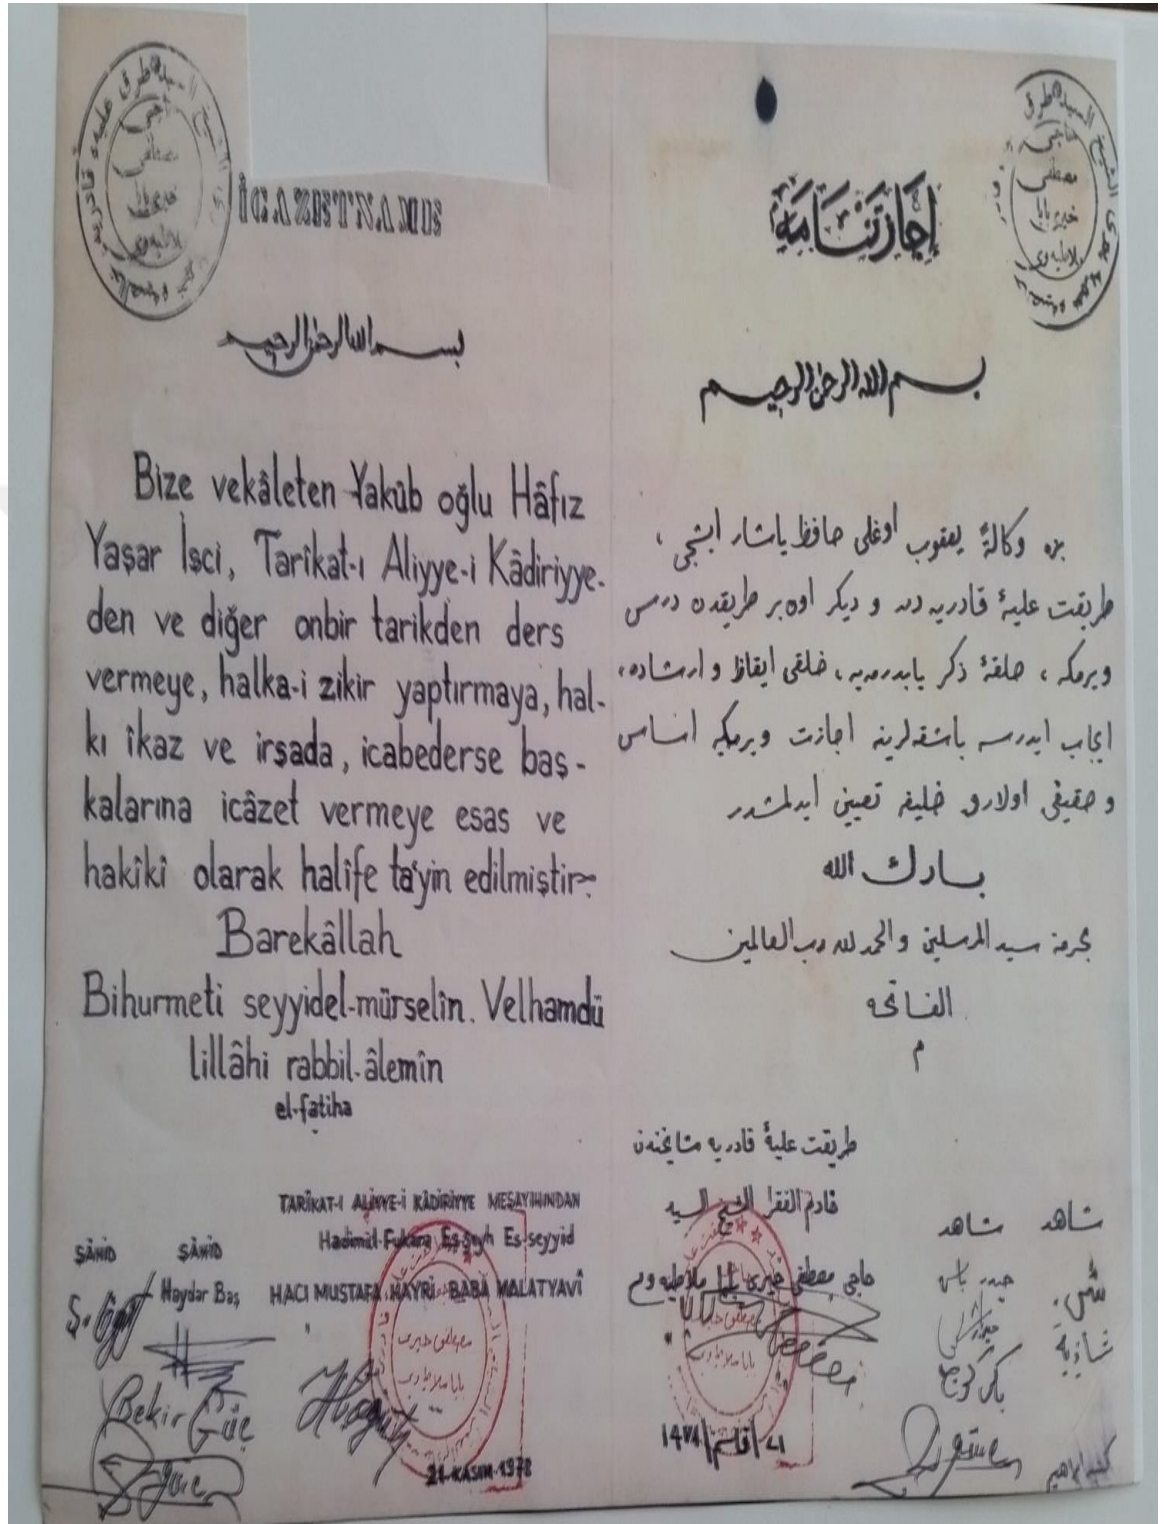 İCAZETNAME
بسم الله الرحمن الرحيم
Bize vekâleten Yakûb oğlu Hâfız
Yaşar İşci, Tarîkat-ı Aliyye-i Kâdiriyye-
den ve diğer onbir tarikden ders
vermeye, halka-i zikir yaptırmaya, hal-
kı îkaz ve irşada, icabederse baş-
kalarına icâzet vermeye esas ve
hakîkî olarak halîfe ta'yin edilmiştir
Barekâllah
Bihurmeti seyyidel-mürselîn. Velhamdü
lillâhi rabbil-âlemîn
el-fatiha
TARÎKAT-I ALİYYE-İ KÂDİRİYYE MEŞAYIHINDAN
Hadimül-Fukara Eş-şeyh Es-seyyid
HACI MUSTAFA HAYRİ BABA MALATYAVÎ
ŞÂHİD
ŞÂHİD
Haydar Baş
Bekir Güç
21-KASIM-1978
إجازتنامه
بسم الله الرحمن الرحيم
بزه وكالةً يعقوب اوغلى حافظ ياشار ايشجى ،
طريقت عليۀ قادريه دن و ديكر اون بر طريقدن درس
ويرمكه ، حلقۀ ذكر ياپدرمه يه ، خلقى ايقاظ و ارشاده ،
ايجاب ايدرسه باشقه لرينه اجازت ويرمكه اساس
و حقيقى اولارق خليفه تعيين ايدلمشدر
بارك الله
بحرمة سيد المرسلين والحمد لله رب العالمين
الفاتحه
م
طريقت عليۀ قادريه مشايخندن
خادم الفقرا الشيخ السيد
حاجى مصطفى خيرى بابا ملاطيه وى
شاهد
شاهد
حيدر باش